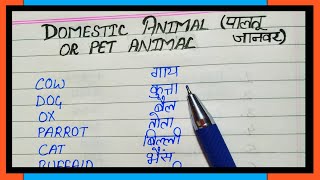 DOMESTIC ANIMAL (पालतू
OR PET ANIMAL जानवर)
COW गाय
DOG कुत्ता
OX बैल
PARROT तोता
CAT बिल्ली
BUFFALO भैंस